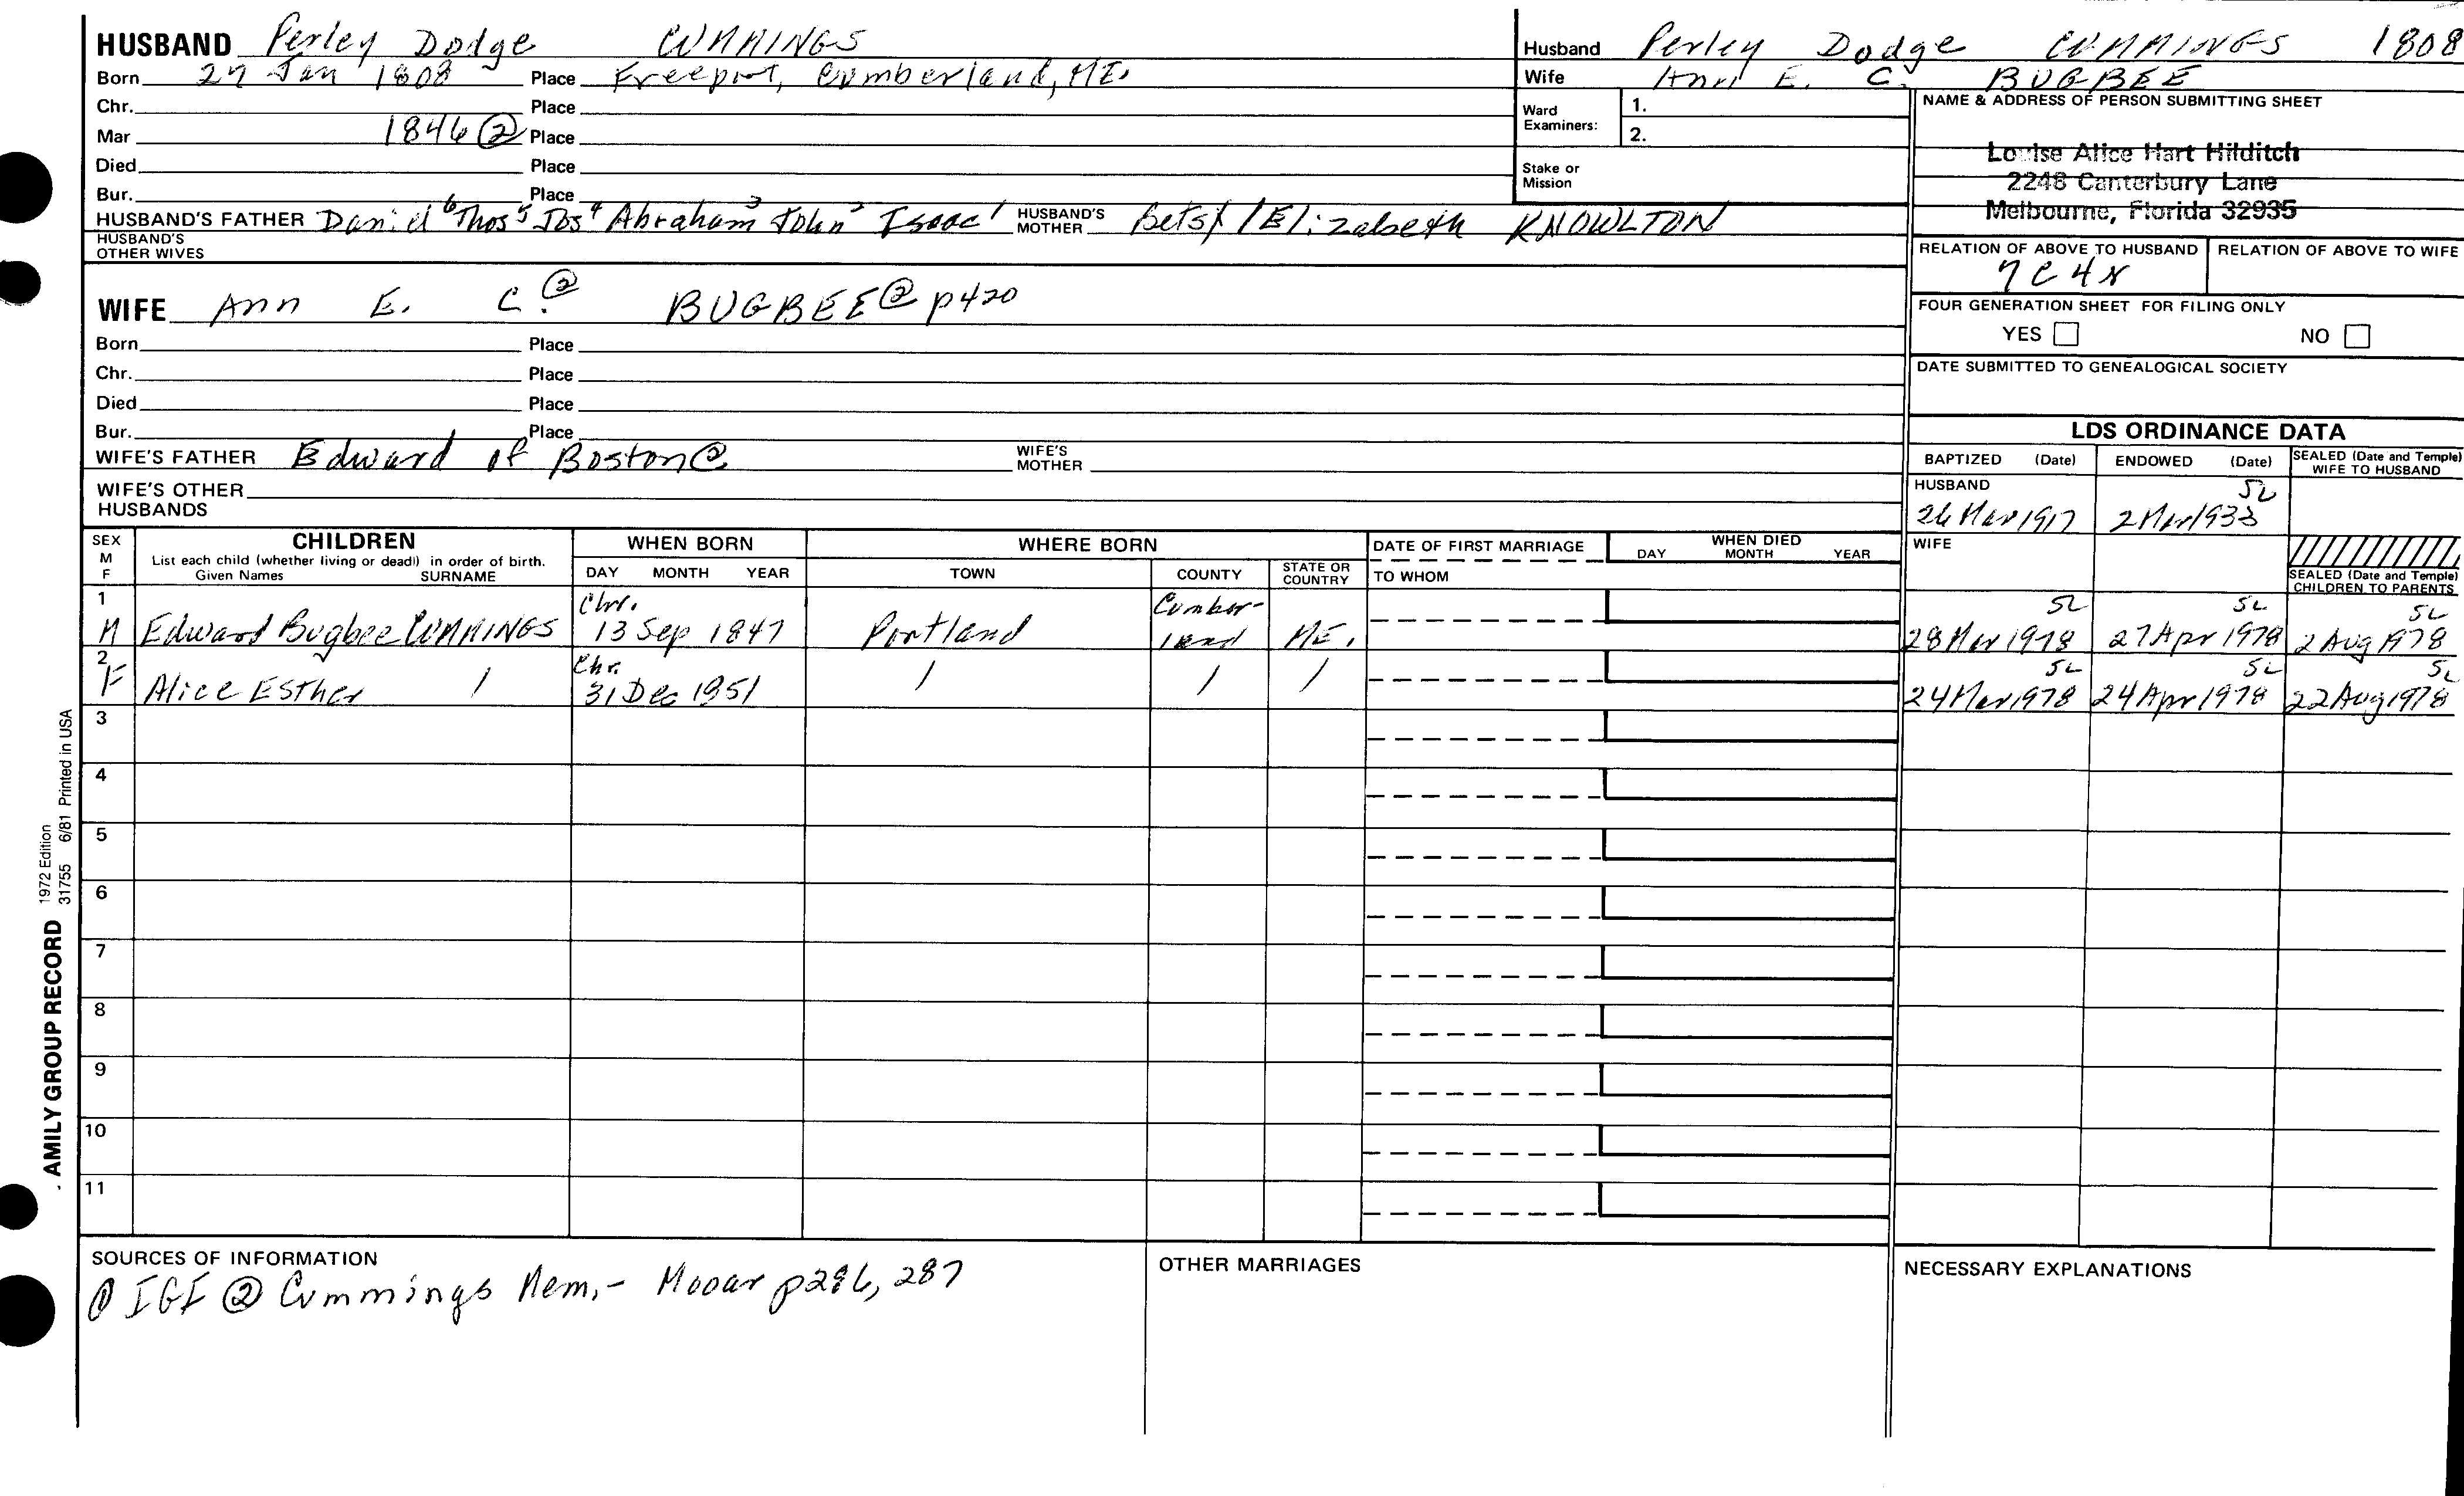 HUSBAND Perley Dodge CUMMINGS
Born 27 Jan 1808 Place Freeport, Cumberland, ME.
Chr. Place
Mar 1846 ② Place
Died Place
Bur. Place
HUSBAND'S FATHER Daniel⁶ Thos⁵ Jos⁴ Abraham³ John² Isaac¹ HUSBAND'S MOTHER Betsy/Elizabeth KNOWLTON
HUSBAND'S OTHER WIVES
WIFE Ann E. C. ② BUGBEE ② p420
Born Place
Chr. Place
Died Place
Bur. Place
WIFE'S FATHER Edward of Boston ② WIFE'S MOTHER
WIFE'S OTHER HUSBANDS
Husband Perley Dodge CUMMINGS 1808
Wife Ann E. C. BUGBEE
Ward Examiners: 1.
2.
Stake or Mission
NAME & ADDRESS OF PERSON SUBMITTING SHEET
Louise Alice Hart Hilditch
2248 Canterbury Lane
Melbourne, Florida 32935
RELATION OF ABOVE TO HUSBAND RELATION OF ABOVE TO WIFE
7C4X
FOUR GENERATION SHEET FOR FILING ONLY
YES NO
DATE SUBMITTED TO GENEALOGICAL SOCIETY
LDS ORDINANCE DATA
BAPTIZED (Date) ENDOWED (Date) SEALED (Date and Temple) WIFE TO HUSBAND
HUSBAND SL
26 Mar 1917 2 Mar 1933
WIFE
SEALED (Date and Temple) CHILDREN TO PARENTS
SEX M F CHILDREN WHEN BORN WHERE BORN DATE OF FIRST MARRIAGE WHEN DIED
List each child (whether living or dead) in order of birth. DAY MONTH YEAR
Given Names SURNAME DAY MONTH YEAR TOWN COUNTY STATE OR COUNTRY TO WHOM
1 Chr. Cumber- SL SL SL
M Edward Bugbee CUMMINGS 13 Sep 1847 Portland land ME. 28 Mar 1978 27 Apr 1978 2 Aug 1978
2 Chr. SL SL SL
F Alice Esther / 31 Dec 1851 / / / 24 Mar 1978 24 Apr 1978 22 Aug 1978
3
4
5
6
7
8
9
10
11
SOURCES OF INFORMATION
① IGI ② Cummings Mem.- Mooar p286, 287
OTHER MARRIAGES
NECESSARY EXPLANATIONS
AMILY GROUP RECORD 1972 Edition
31755 6/81 Printed in USA